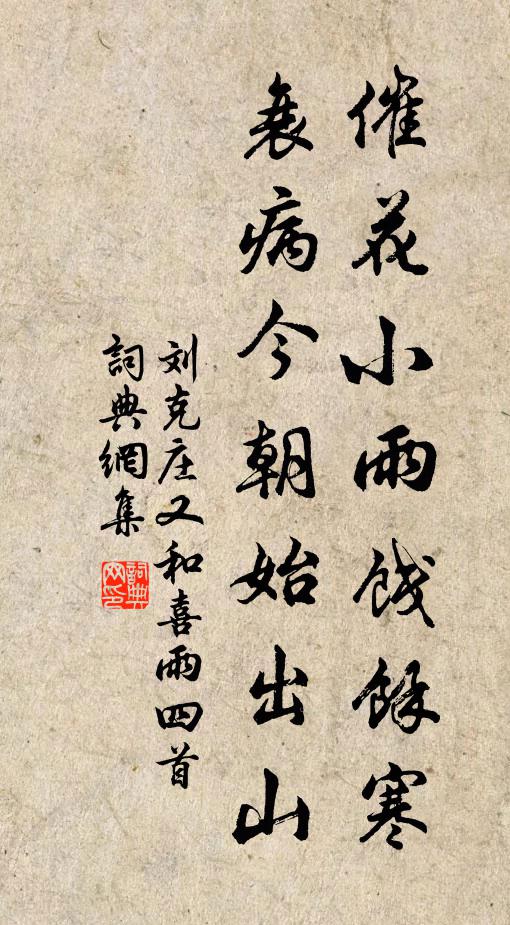 催花小雨餞餘寒
衰病今朝始出山
刘克庄又和喜雨四首
詞典網集
詞典网印